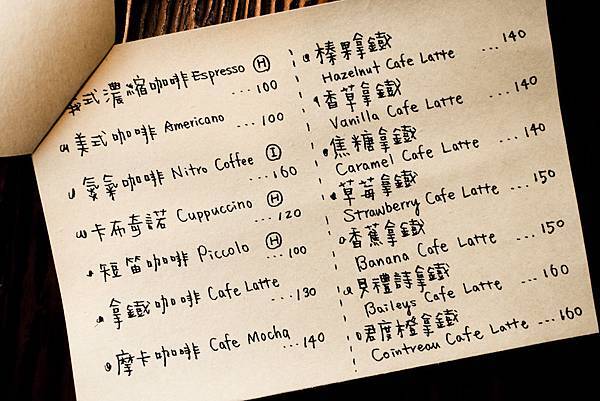 義式濃縮咖啡 Espresso Ⓗ
...100
美式咖啡 Americano
...100
氮氣咖啡 Nitro Coffee Ⓘ
...160
卡布奇諾 Cuppuccino Ⓗ
...120
短笛咖啡 Piccolo Ⓗ
...100
拿鐵咖啡 Cafe Latte
...130
摩卡咖啡 Cafe Mocha
...140
榛果拿鐵
Hazelnut Cafe Latte ...140
香草拿鐵
Vanilla Cafe Latte ...140
焦糖拿鐵
Caramel Cafe Latte ...140
草莓拿鐵
Strawberry Cafe Latte ...150
香蕉拿鐵
Banana Cafe Latte ...150
貝禮詩拿鐵
Baileys Cafe Latte ...160
君度橙拿鐵
Cointreau Cafe Latte ...160